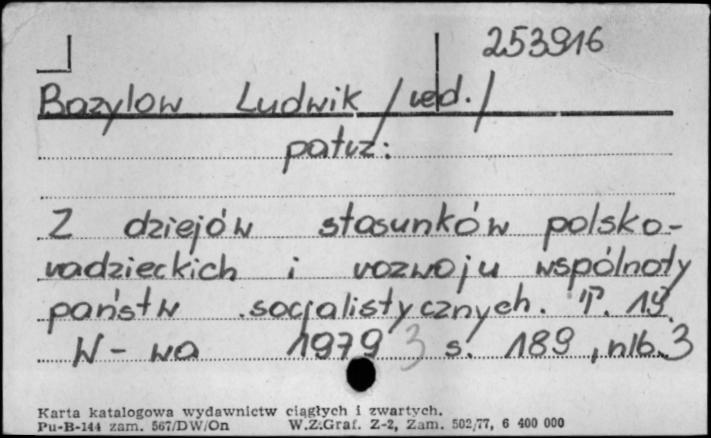 253916
Bazylow Ludwik /red./
patrz:
Z dziejów stosunków polsko-
radzieckich i rozwoju wspólnoty
państw socjalistycznych. T. 19.
W-wa 1979 3 s. 189, nlb. 3
Karta katalogowa wydawnictw ciągłych i zwartych.
Pu-B-144 zam. 567/DW/On W.Z.Graf. Z-2, Zam. 502/77, 6 400 000